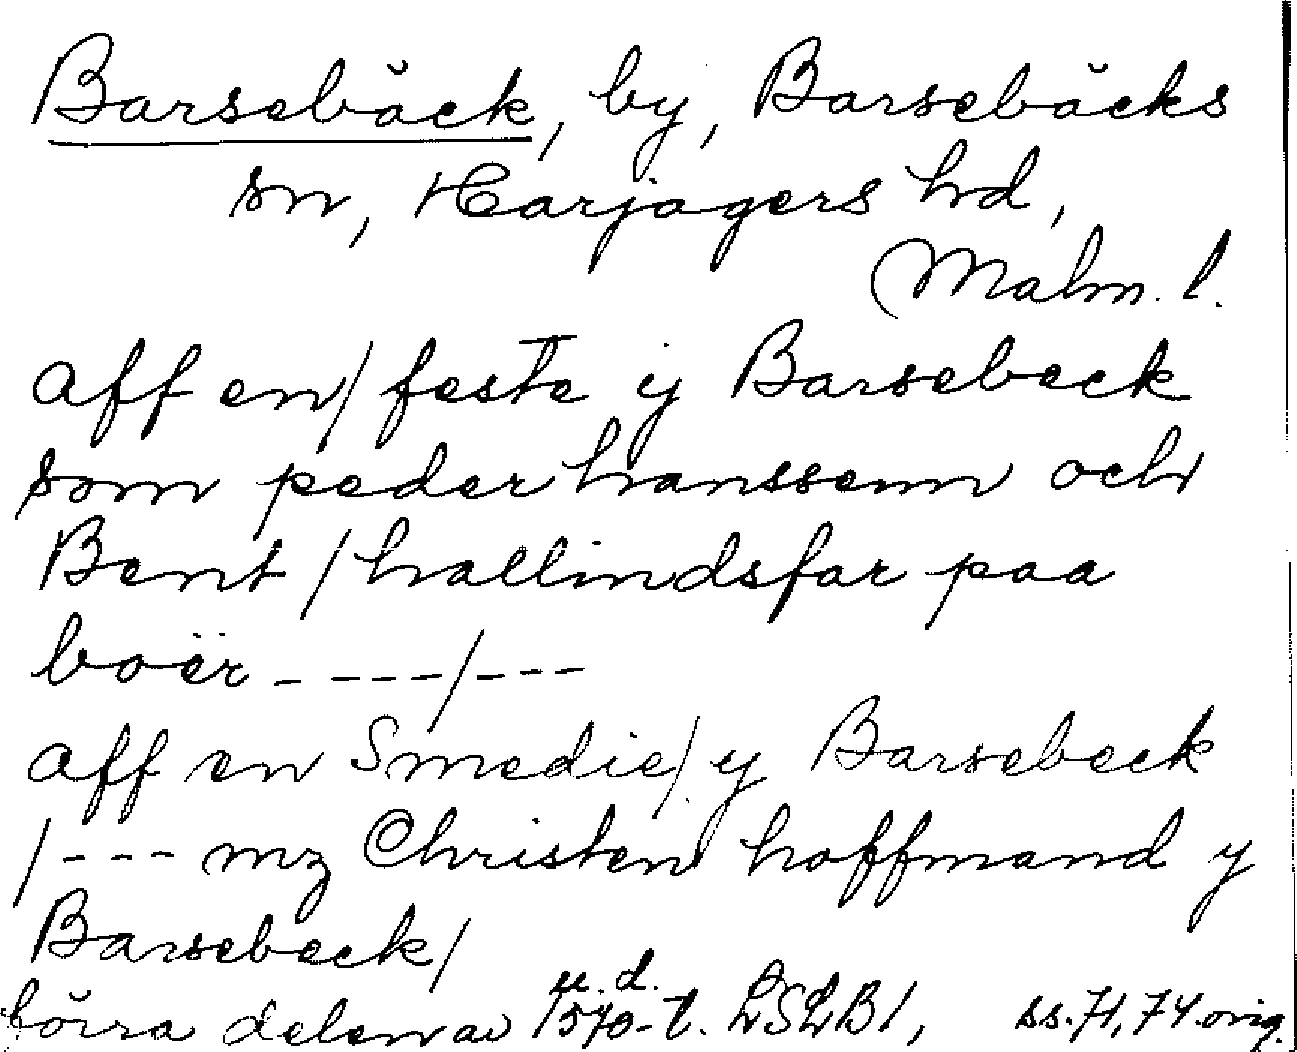 Barsebäck, by, Barsebäcks
sn, Harjagers hd,
Malm. l.
aff en/ feste ij Barsebeck
som peder hanssenn och
Bent / hallindsfar paa
boër - - - - - / - - -
aff en Smedie/ y Barsebeck
/ - - - mz Christen hoffmand y
Barsebeck/
u. d.
förra delen av 1570-t. LSLB1, ss. 71, 74. orig.